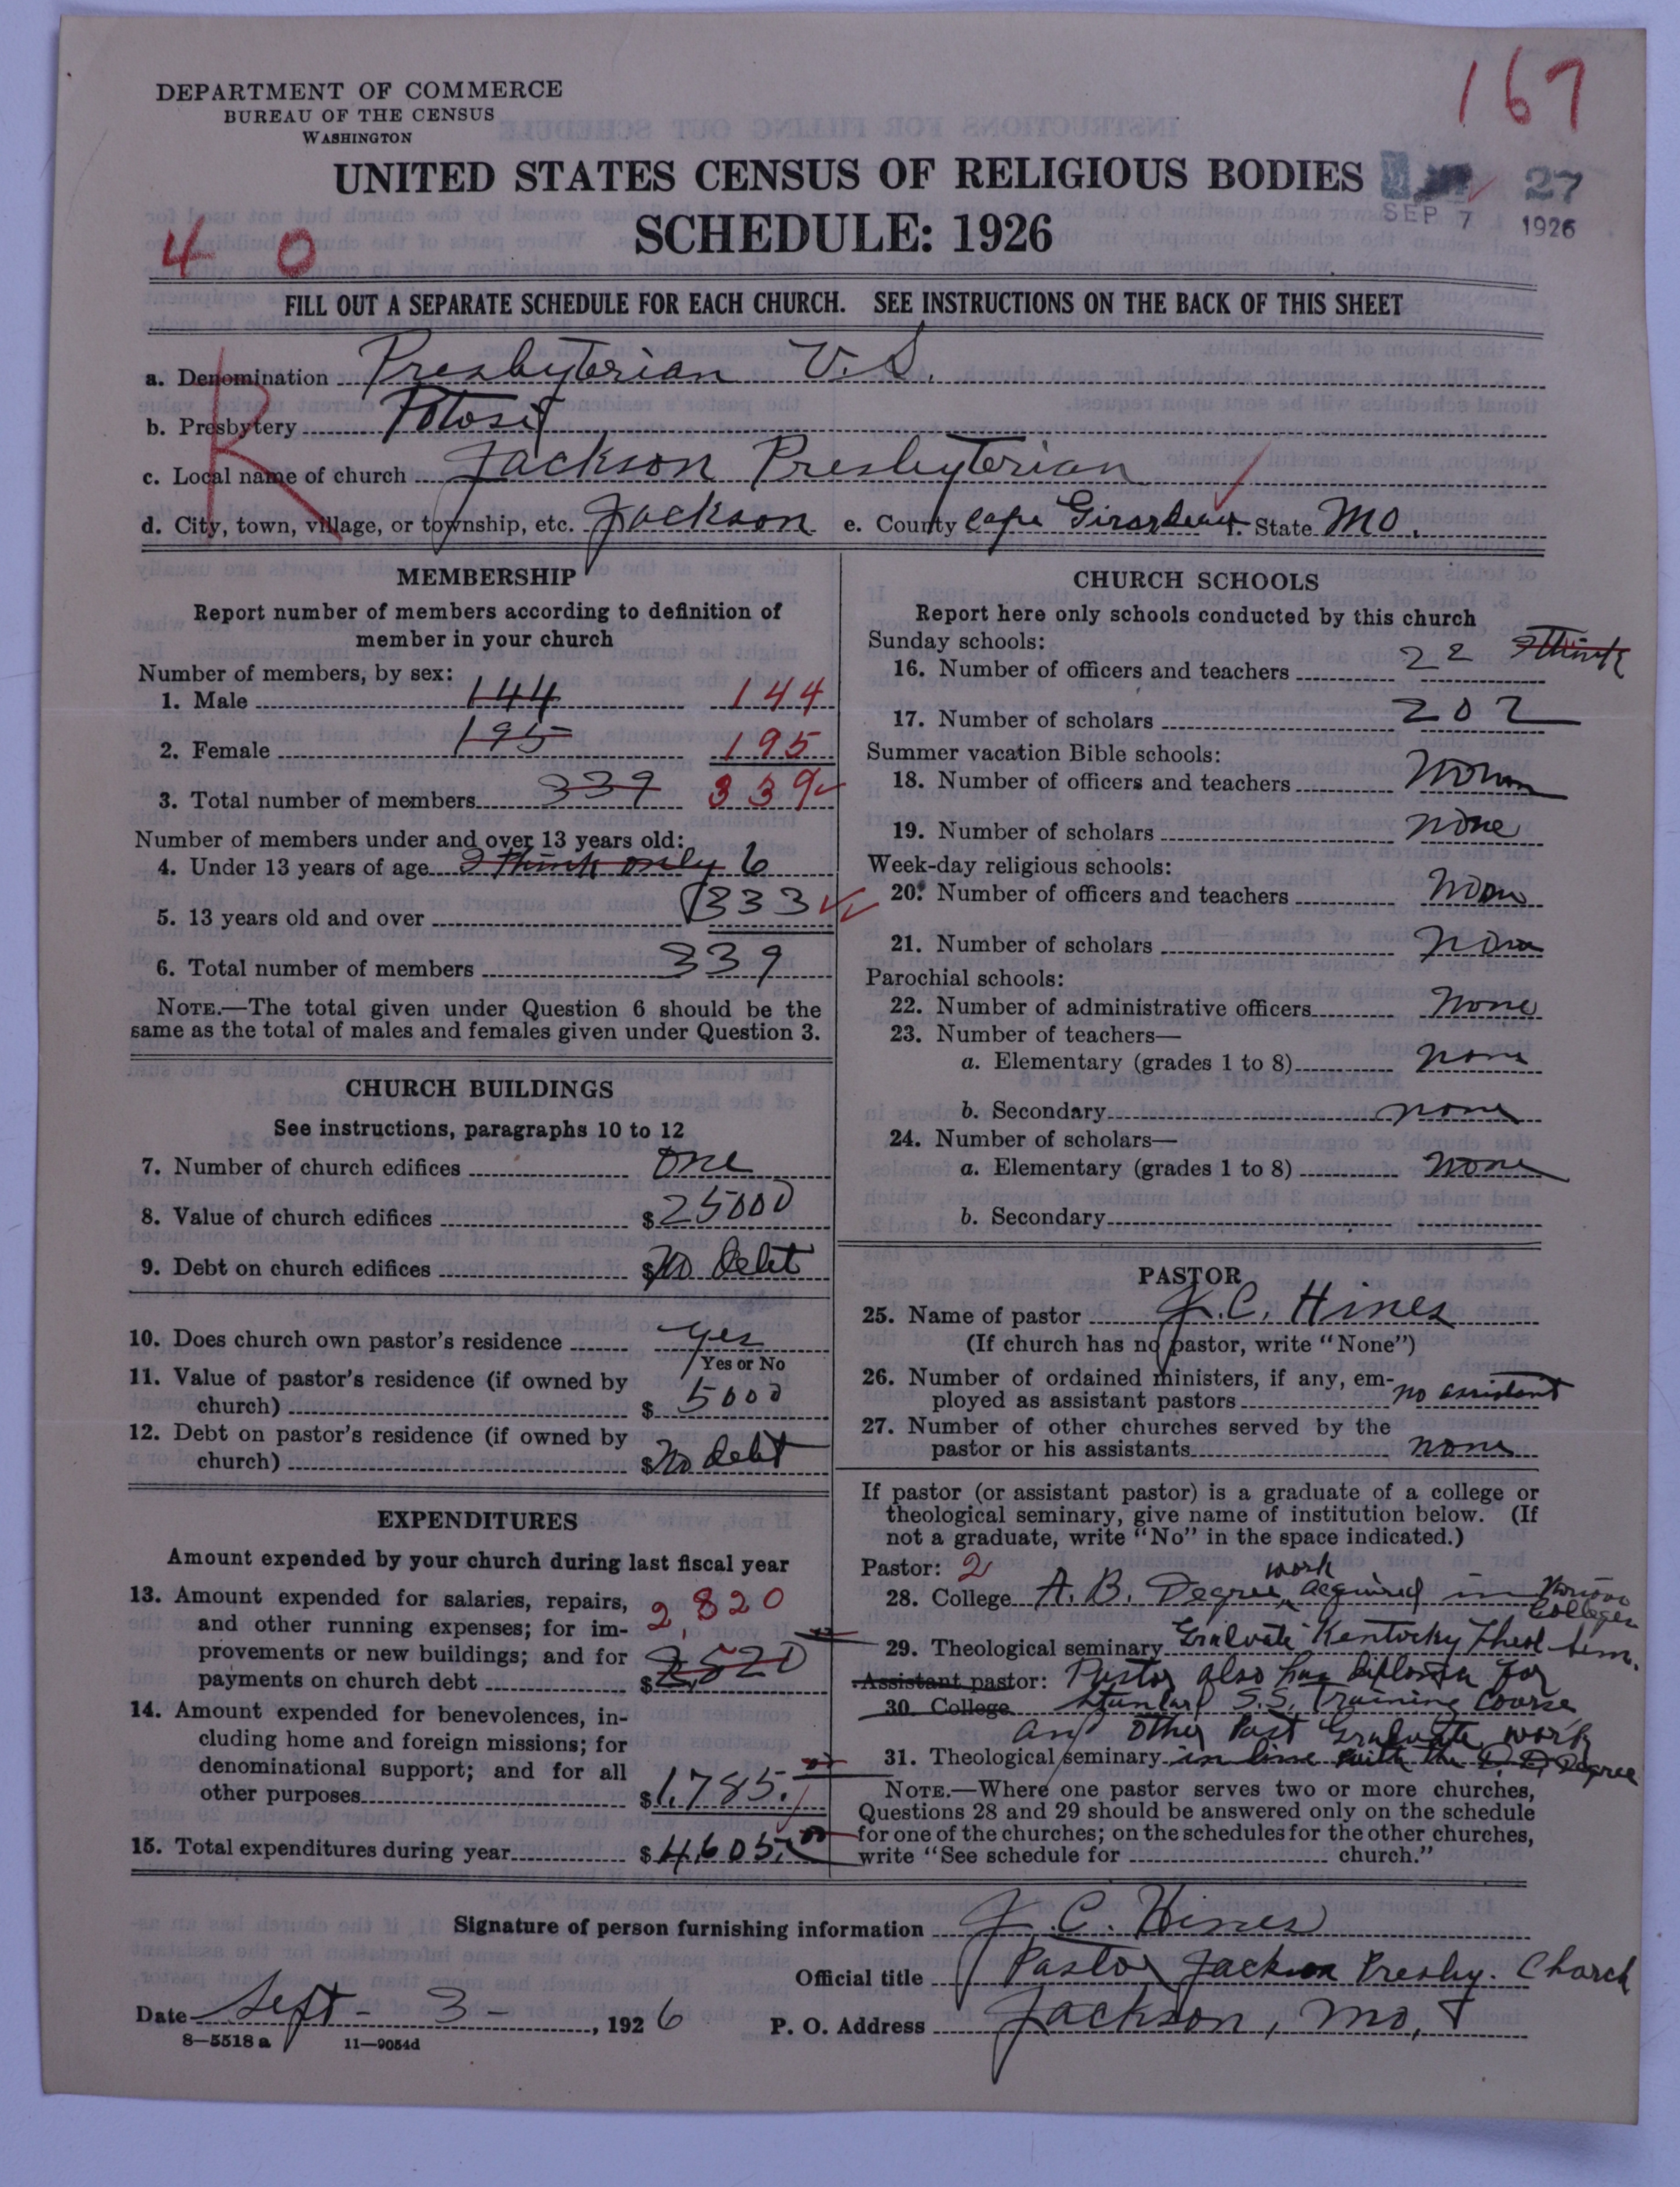 167
DEPARTMENT OF COMMERCE
BUREAU OF THE CENSUS
WASHINGTON
UNITED STATES CENSUS OF RELIGIOUS BODIES
SCHEDULE: 1926
27
SEP 7 1926
4 0
FILL OUT A SEPARATE SCHEDULE FOR EACH CHURCH. SEE INSTRUCTIONS ON THE BACK OF THIS SHEET
R
a. Denomination Presbyterian U.S.
b. Presbytery Potosi
c. Local name of church Jackson Presbyterian
d. City, town, village, or township, etc. Jackson e. County Cape Girardeau f. State Mo.
MEMBERSHIP
Report number of members according to definition of
member in your church
Number of members, by sex:
1. Male 144 144
2. Female 195 195
3. Total number of members 339 339
Number of members under and over 13 years old:
4. Under 13 years of age I think only 6
5. 13 years old and over 333
6. Total number of members 339
NOTE.—The total given under Question 6 should be the
same as the total of males and females given under Question 3.
CHURCH BUILDINGS
See instructions, paragraphs 10 to 12
7. Number of church edifices one
8. Value of church edifices $25000
9. Debt on church edifices $No debt
10. Does church own pastor's residence yes
Yes or No
11. Value of pastor's residence (if owned by
church) $5000
12. Debt on pastor's residence (if owned by
church) $No debt
EXPENDITURES
Amount expended by your church during last fiscal year
13. Amount expended for salaries, repairs,
and other running expenses; for im-
provements or new buildings; and for
payments on church debt $2,520
2,820
14. Amount expended for benevolences, in-
cluding home and foreign missions; for
denominational support; and for all
other purposes $1,785.
15. Total expenditures during year $4,605.00
CHURCH SCHOOLS
Report here only schools conducted by this church
Sunday schools:
16. Number of officers and teachers 22 I think
17. Number of scholars 202
Summer vacation Bible schools:
18. Number of officers and teachers None
19. Number of scholars none
Week-day religious schools:
20. Number of officers and teachers None
21. Number of scholars none
Parochial schools:
22. Number of administrative officers None
23. Number of teachers—
a. Elementary (grades 1 to 8) none
b. Secondary none
24. Number of scholars—
a. Elementary (grades 1 to 8) none
b. Secondary
PASTOR
25. Name of pastor J. C. Hines
(If church has no pastor, write "None")
26. Number of ordained ministers, if any, em-
ployed as assistant pastors no assistant
27. Number of other churches served by the
pastor or his assistants none
If pastor (or assistant pastor) is a graduate of a college or
theological seminary, give name of institution below. (If
not a graduate, write "No" in the space indicated.)
Pastor: 2
28. College A. B. Degree, work acquired in various Colleges
29. Theological seminary Graduate Kentucky Theol Sem.
Assistant pastor: Pastor also has diploma for
30. College Standard S.S. Training Course
and other Post Graduate work
31. Theological seminary in line with the D. D. Degree
NOTE.—Where one pastor serves two or more churches,
Questions 28 and 29 should be answered only on the schedule
for one of the churches; on the schedules for the other churches,
write "See schedule for church."
Signature of person furnishing information J. C. Hines
Official title Pastor Jackson Presby. Church
Date Sept - 3 -, 1926 P. O. Address Jackson, Mo.
8—5518 a 11—9054d